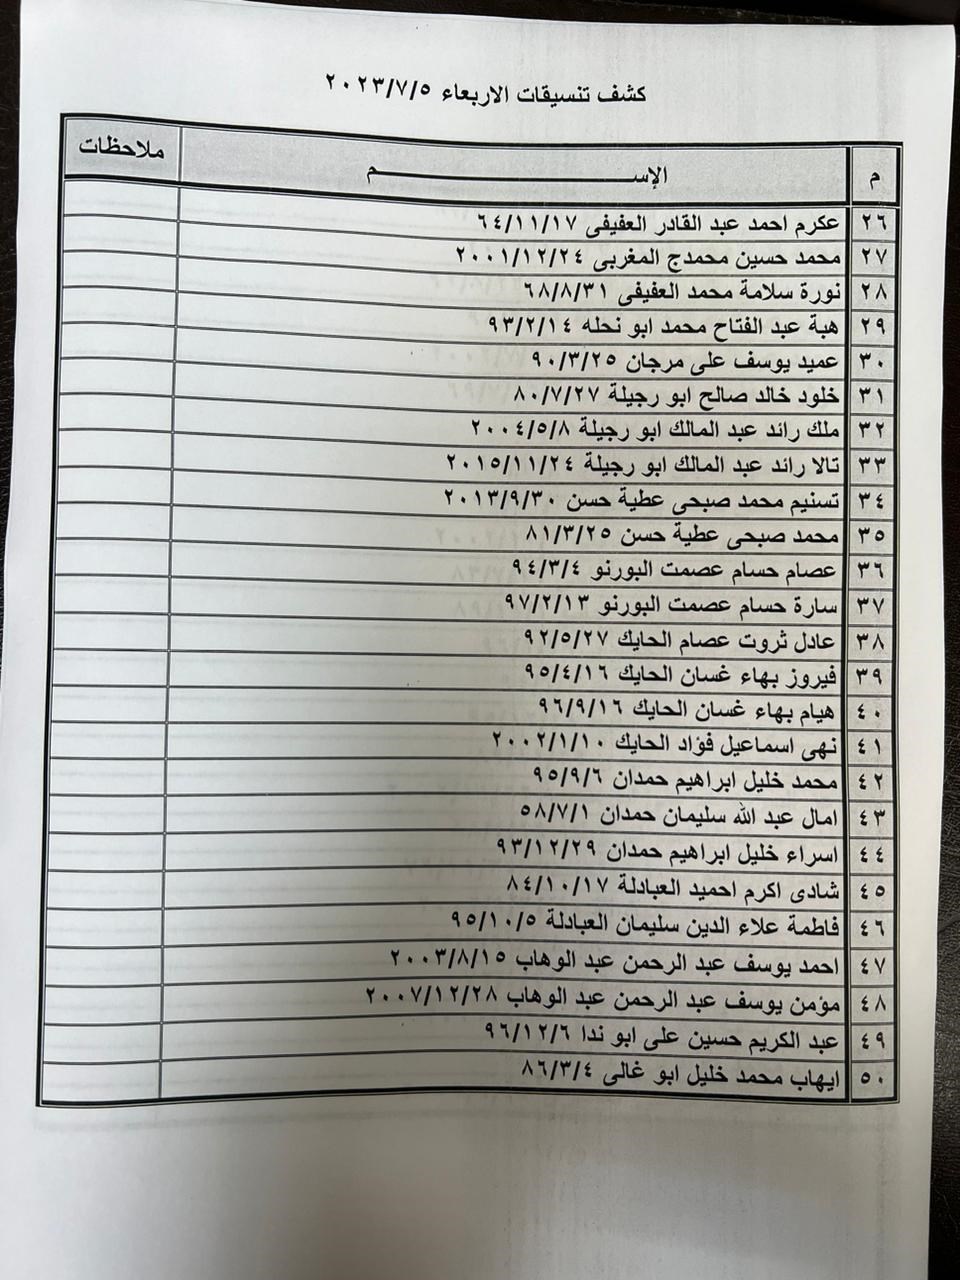 كشف تنسيقات الاربعاء ٢٠٢٣/٧/٥
م الإســـــــم ملاحظات
٢٦ عكرم احمد عبد القادر العفيفى ٦٤/١١/١٧
٢٧ محمد حسين محمدج المغربى ٢٠٠١/١٢/٢٤
٢٨ نورة سلامة محمد العفيفى ٦٨/٨/٣١
٢٩ هبة عبد الفتاح محمد ابو نحله ٩٣/٢/١٤
٣٠ عميد يوسف على مرجان ٩٠/٣/٢٥
٣١ خلود خالد صالح ابو رجيلة ٨٠/٧/٢٧
٣٢ ملك رائد عبد المالك ابو رجيلة ٢٠٠٤/٥/٨
٣٣ تالا رائد عبد المالك ابو رجيلة ٢٠١٥/١١/٢٤
٣٤ تسنيم محمد صبحى عطية حسن ٢٠١٣/٩/٣٠
٣٥ محمد صبحى عطية حسن ٨١/٣/٢٥
٣٦ عصام حسام عصمت البورنو ٩٤/٣/٤
٣٧ سارة حسام عصمت البورنو ٩٧/٢/١٣
٣٨ عادل ثروت عصام الحايك ٩٢/٥/٢٧
٣٩ فيروز بهاء غسان الحايك ٩٥/٤/١٦
٤٠ هيام بهاء غسان الحايك ٩٦/٩/١٦
٤١ نهى اسماعيل فؤاد الحايك ٢٠٠٢/١/١٠
٤٢ محمد خليل ابراهيم حمدان ٩٥/٩/٦
٤٣ امال عبد الله سليمان حمدان ٥٨/٧/١
٤٤ اسراء خليل ابراهيم حمدان ٩٣/١٢/٢٩
٤٥ شادى اكرم احميد العبادلة ٨٤/١٠/١٧
٤٦ فاطمة علاء الدين سليمان العبادلة ٩٥/١٠/٥
٤٧ احمد يوسف عبد الرحمن عبد الوهاب ٢٠٠٣/٨/١٥
٤٨ مؤمن يوسف عبد الرحمن عبد الوهاب ٢٠٠٧/١٢/٢٨
٤٩ عبد الكريم حسين على ابو ندا ٩٦/١٢/٦
٥٠ ايهاب محمد خليل ابو غالى ٨٦/٣/٤